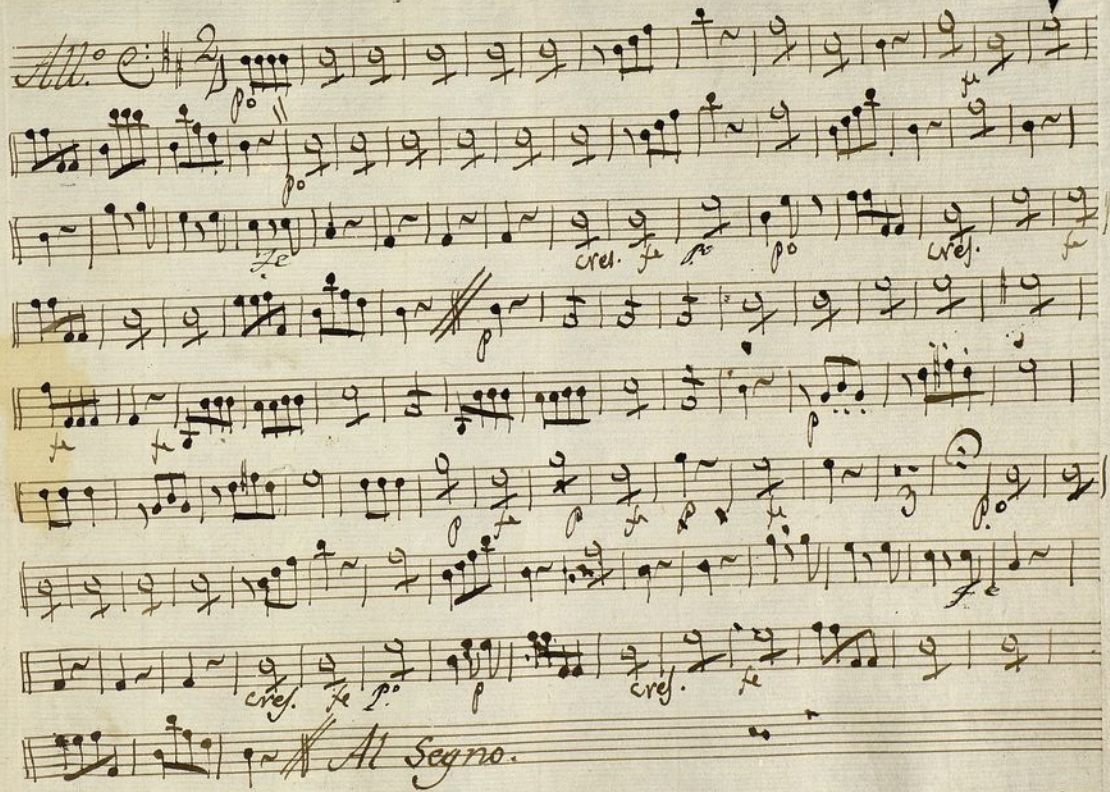 All.º 2
po
fe
po
fe cres. fe po po cres. fe
p
fe fe p
p fe p fe p fe 3 p.o
fe
cres. fe p.º p cres. fe
Al Segno.